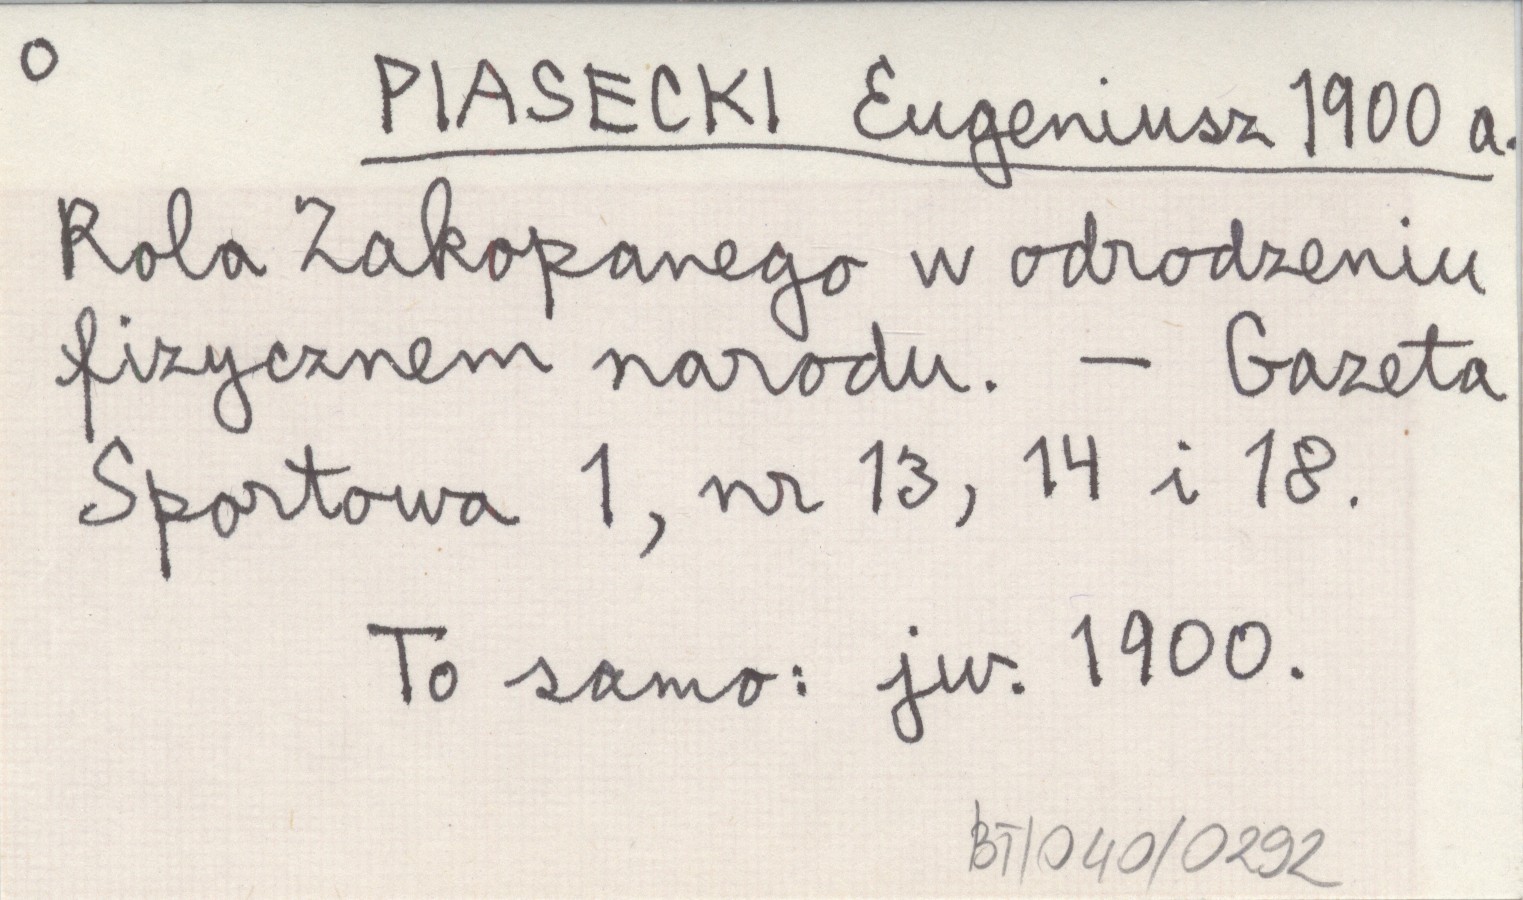 O
PIASECKI Eugeniusz 1900 a.
Rola Zakopanego w odrodzeniu
fizycznem narodu. – Gazeta
Sportowa 1, nr 13, 14 i 18.
To samo: jw. 1900.
BT/040/0292